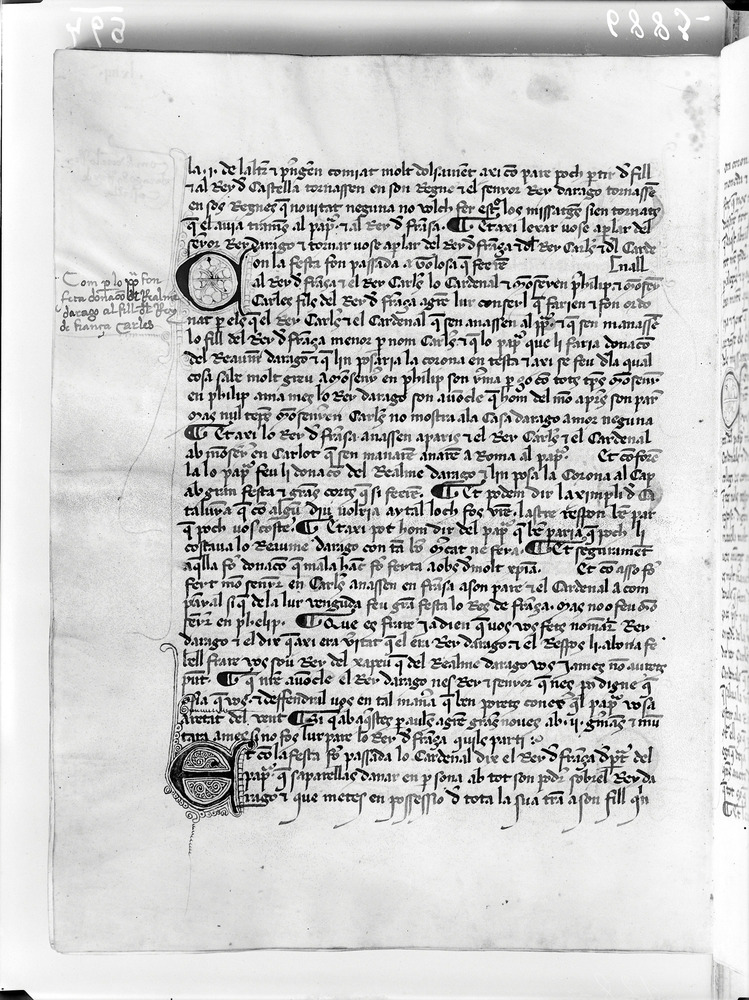 la .i. de laltr & prengen comiat molt dolsament axi co pare poch partir d fill
& al Rey d Castella tornassen en son Regne & el senyor Rey darago tornasse
en sos Regnes q novitat neguna no volch fer los missatges sien tornats
q el avia al papa & al Rey d frasa. Et axi lexar vos e a parlar del
senyor Rey darago & tornar vos e a parlar del Rey d fraça & dl Rey Carles & dl Carde
Con la festa fon passada a Tolosa q feeren nall
al Rey d fraça & el Rey Carles lo Cardenal & monseyer philip & monseyer
Carles fills del Rey d fraça agren lur conseyl q farien & fon ordo
nat per ells q el Rey Carles & el Cardenal q sen anassen al papa & q sen manassen
lo fill del Rey d fraça menor p nom Carles & q lo papa que li faria donaco
del Reaume darago & q lin posaria la corona en testa & axi se feu dla qual
cosa sabe molt greu a monseyer en philip son frare p ço co tots temps monseyer
en philip ama mes lo Rey darago son avoncle q hom del mon apres son pare
Mas nul temps monseyer en Carles no mostra a la Casa darago amor neguna
Et axi lo Rey d frasa anassen a paris & el Rey Carles & el Cardenal
ab monseyer en Carlot q sen manaren anaren a Roma al papa. Et co foren
la lo papa feu li donaco del Realme darago & lin posa la Corona al Cap
ab gran festa & grans corts q si feeren. Et podem dir la eximpli d Ca
talunya q co algu diu volria aytal loch fos vostre. laltre respon be par
q poch vos costa. Et axi pot hom dir del papa q be paria q poch li
costava lo Reaume darago con tan bo mercat ne feya. Et segurament
aqlla fo donaco q mala hac fo feyta a obs d molt xpia. Et co asso fo
feyt monsenyer en Carles anassen en frasa a son pare & el Cardenal a com
panyal si q de la lur venguda feu gran festa lo Rey de frasa. Mas no o feu mon
senyer en phelip. Que es frare ja dien q vos vos fets nomenar Rey
darago & el dix q axi era veritat q el era Rey darago & el Respos li. a bona fe
bell frare vos sou Rey del xapeu q del Realme darago vos james no aurets
punt. q nostre avoncle el Rey darago nes Rey & senyor q nes pus digne q
no sia q vos & deffendral vos en tal manera q ben porets coneixer q l papa vos a
aretat del vent. Si q ab aqstes paraules agren grans noves ab .ii. germans &
si no fos lur pare lo Rey d fraça quils parti
Et co la festa fo passada lo Cardenal dix al Rey d fraça d part del
papa q s aparellas danar en p sona ab tot son poder sobrel Rey da
rago & que metes en possessio d tota la sua terra a son fill qn
Com p lo papa fon
feta donaco dl Realme
darago al fill dl Rey
de frança Carles